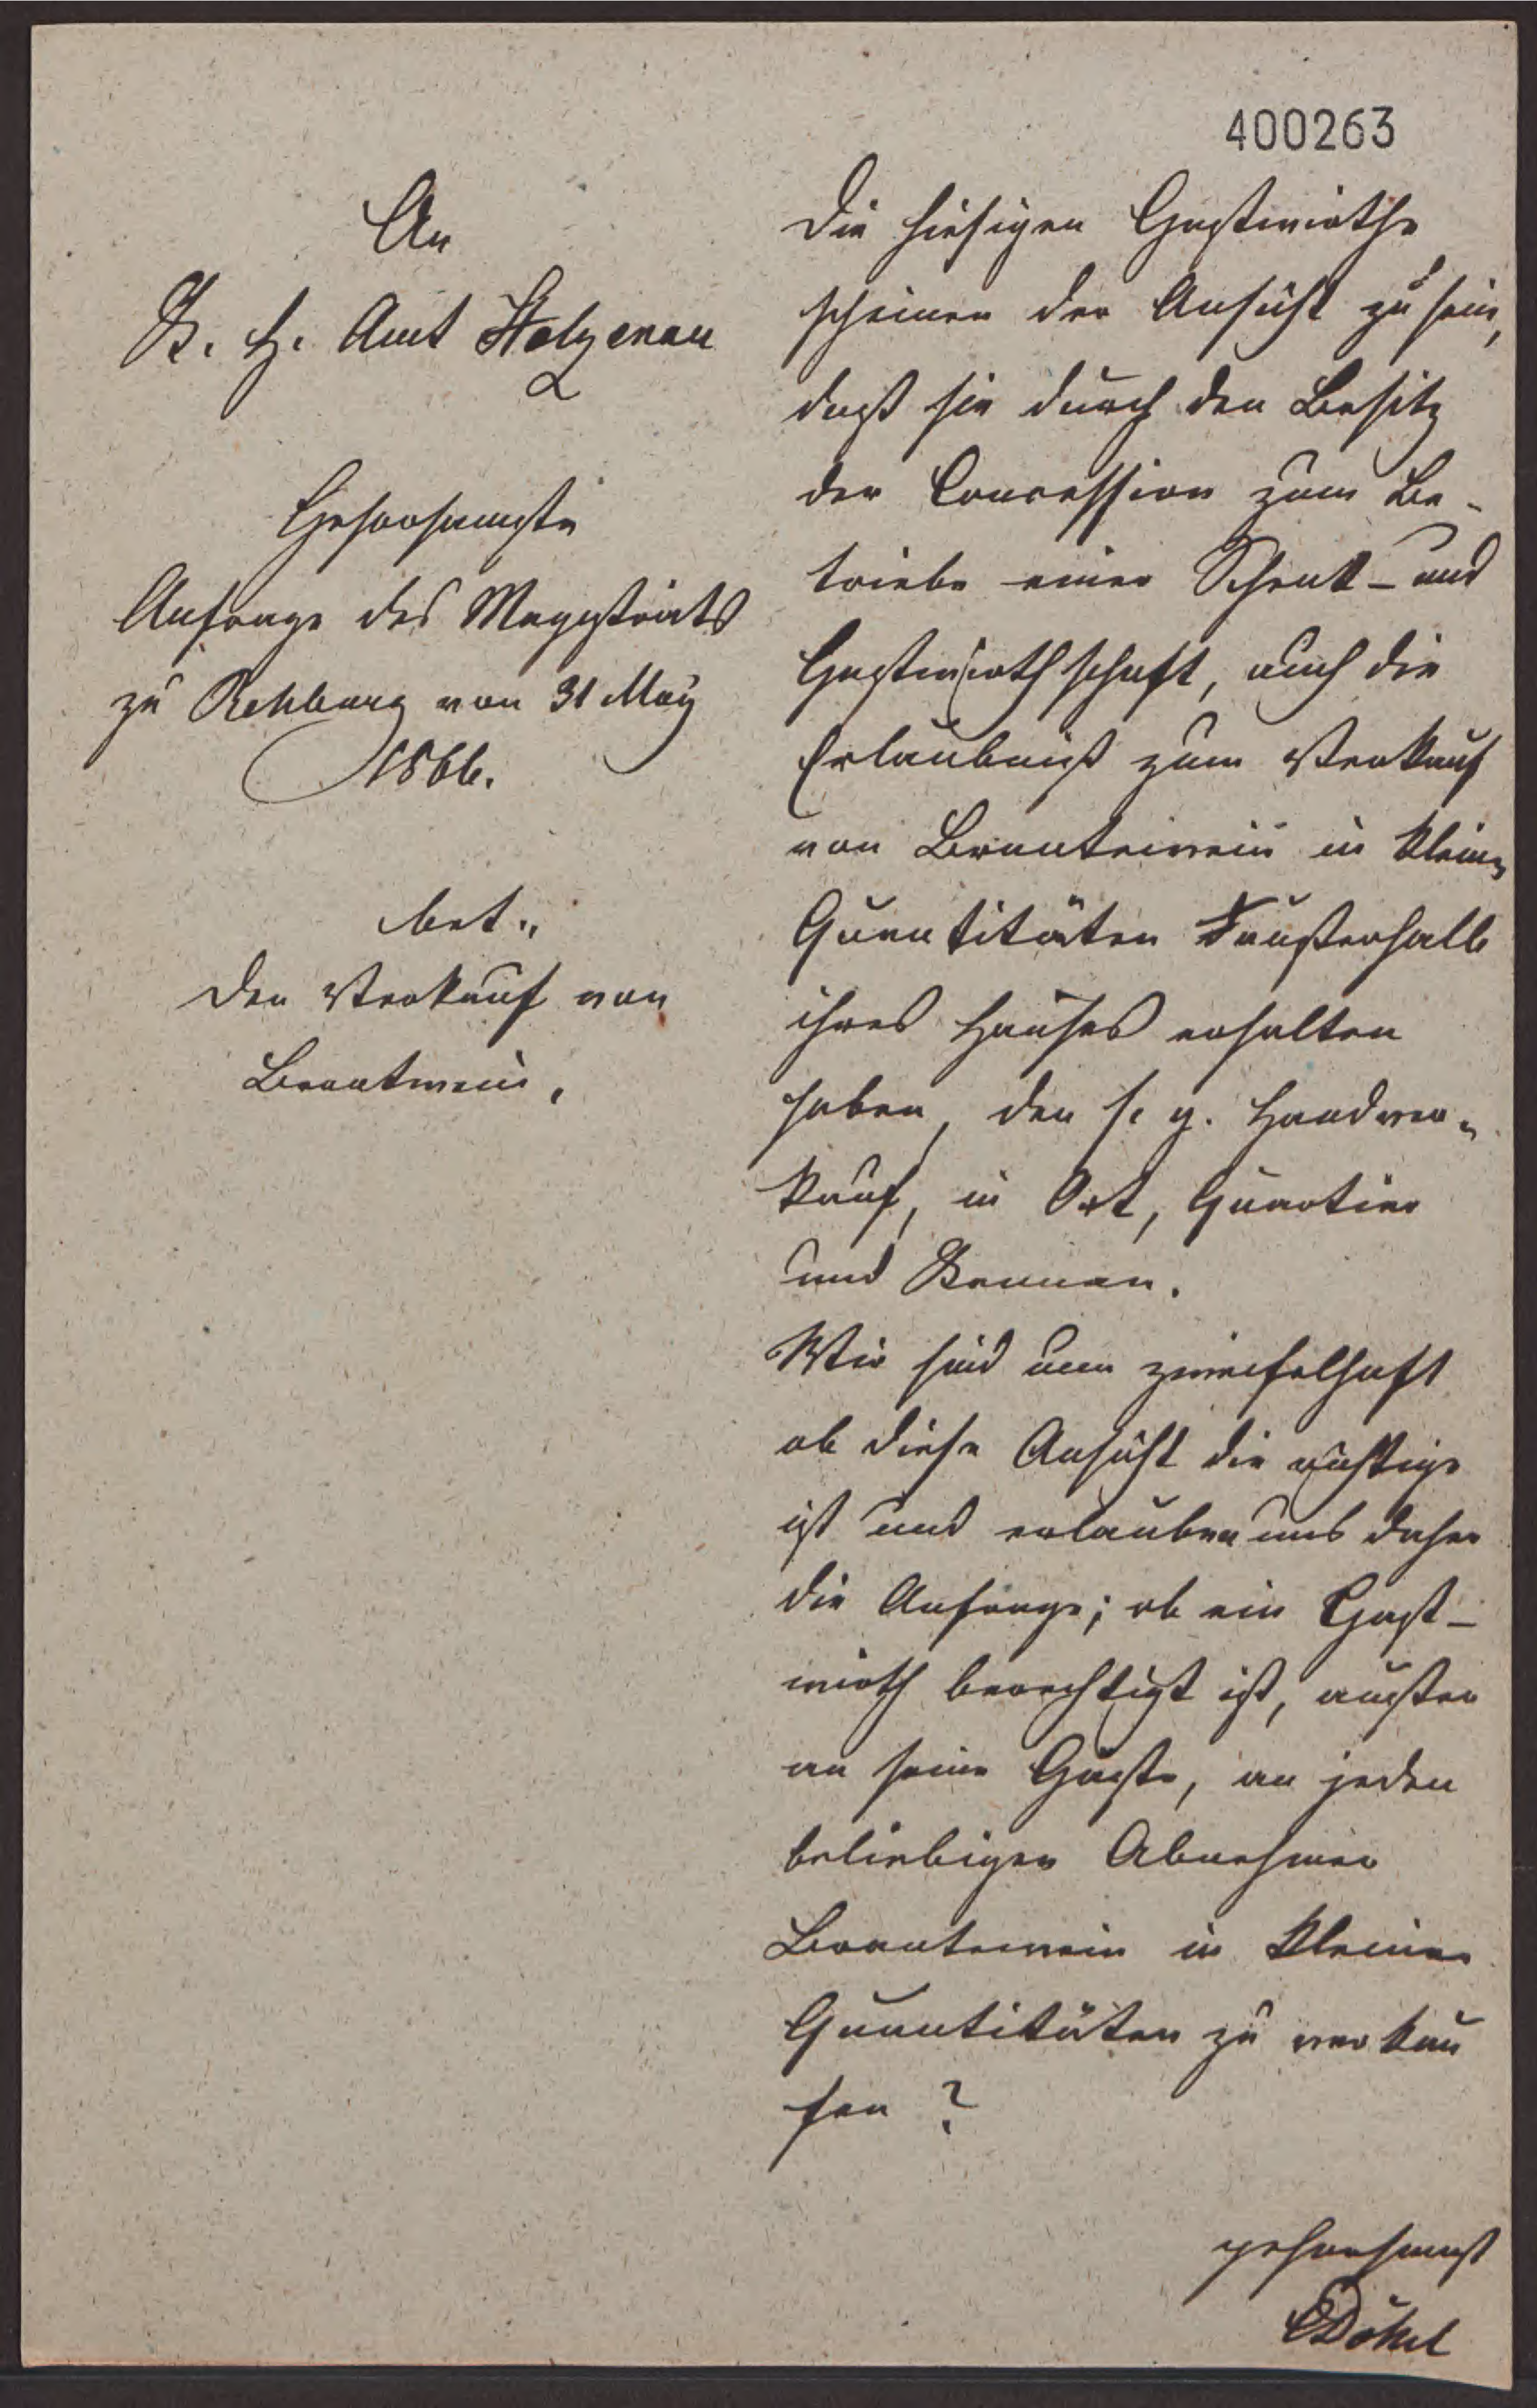 400263
An
K. H. Amt Stolzenau
Gehorsamste
Anfrage des Magistrats
zu Rehburg von 31 May
1866.
bet.,
den Verkauf von
Brantwein.
Die hiesigen Gastwirthe
scheinen der Ansicht zu sein,
daß sie durch den Besitz
der Concession zum Be-
triebe einer Schenk- und
Gastwirthschaft, auch die
Erlaubniß zum Verkauf
von Branntewein in kleinen
Quantitäten außerhalb
ihres Hauses erhalten
haben, den s. g. Handver-
kauf, in Ort, Quartier
und Kannen.
Wir sind nun zweifelhaft
ob diese Ansicht die richtige
ist und erlauben uns daher
die Anfrage; ob ein Gast-
wirth berechtigt ist, außer
an seine Gäste, an jeden
beliebigen Abnehmer
Brantewein in kleinen
Quantitäten zu verkau
fen?
gehorsamst